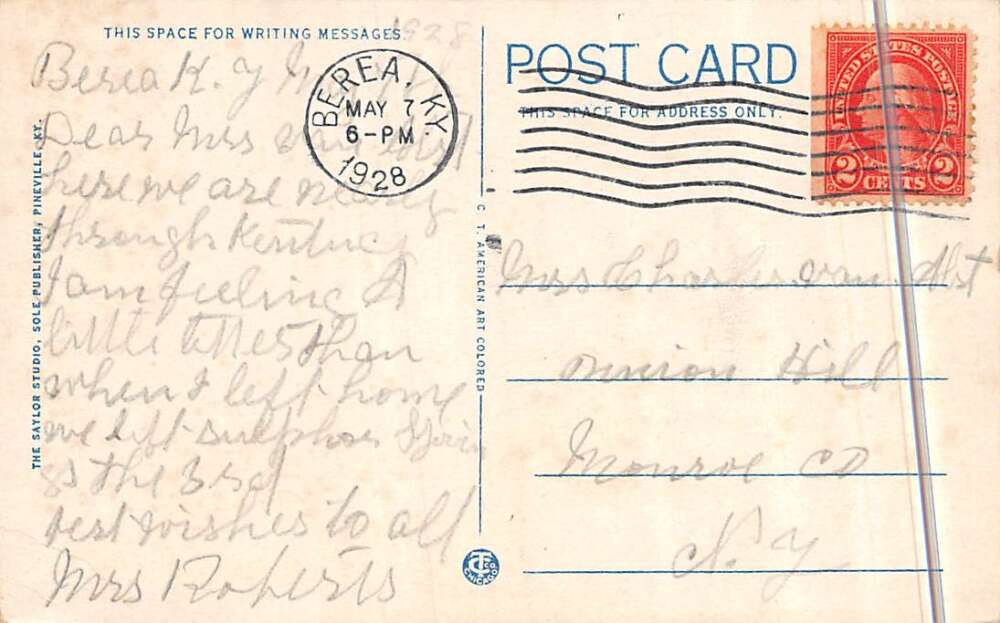 1928
THIS SPACE FOR WRITING MESSAGES
Berea K. y May
Dear Mrs van
here we are nearly
through Kentucy
I am feeling A
little
than
when I left home
we left sulphor Sprin
gs the 3rd
best wishes to all
Mrs Roberts
THE SAYLOR STUDIO, SOLE PUBLISHER, PINEVILLE, KY.
BEREA, KY.
MAY 7
6-PM
1928
C. T. AMERICAN ART COLORED
CHICAGO
POST CARD
THIS SPACE FOR ADDRESS ONLY.
UNITED STATES POSTAGE
2 CENTS 2
Mrs Charles van
union Hill
Monroe co
N. y